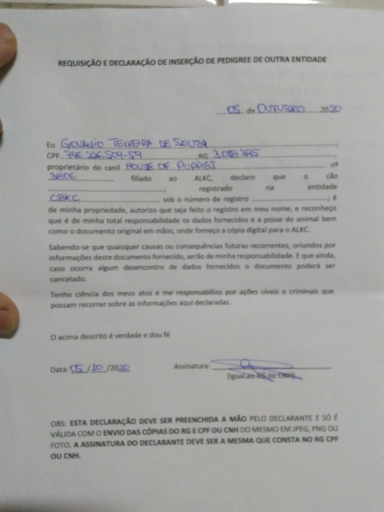 REQUISIÇÃO E DECLARAÇÃO DE INSERÇÃO DE PEDIGREE DE OUTRA ENTIDADE
05 de OUTUBRO 2020
Eu GIOVANIO TEIXEIRA DE SOUZA
CPF RG
proprietário do canil HOUSE OF PUPPIES nº
filiado ao ALKC, declaro que o cão
, registrado na entidade
CBKC sob o número de registro ; é
de minha propriedade, autorizo que seja feito o registro em meu nome, e reconheço
que é de minha total responsabilidade os dados fornecidos e a posse do animal bem
como o documento original em mãos, onde forneço a cópia digital para o ALKC.
Sabendo-se que quaisquer causas ou consequências futuras recorrentes, oriundos por
informações deste documento fornecido, serão de minha responsabilidade. E que ainda,
caso ocorra algum desencontro de dados fornecidos o documento poderá ser
cancelado.
Tenho ciência dos meus atos e me responsabilizo por ações cíveis e criminais que
possam recorrer sobre as informações aqui declaradas.
O acima descrito é verdade e dou fé
Data: 05/10/2020 Assinatura:
(igual ao RG ou CNH)
OBS: ESTA DECLARAÇÃO DEVE SER PREENCHIDA A MÃO PELO DECLARANTE E SÓ É
VÁLIDA COM O ENVIO DAS CÓPIAS DO RG E CPF OU CNH DO MESMO EM JPEG, PNG OU
FOTO. A ASSINATURA DO DECLARANTE DEVE SER A MESMA QUE CONSTA NO RG CPF
OU CNH.